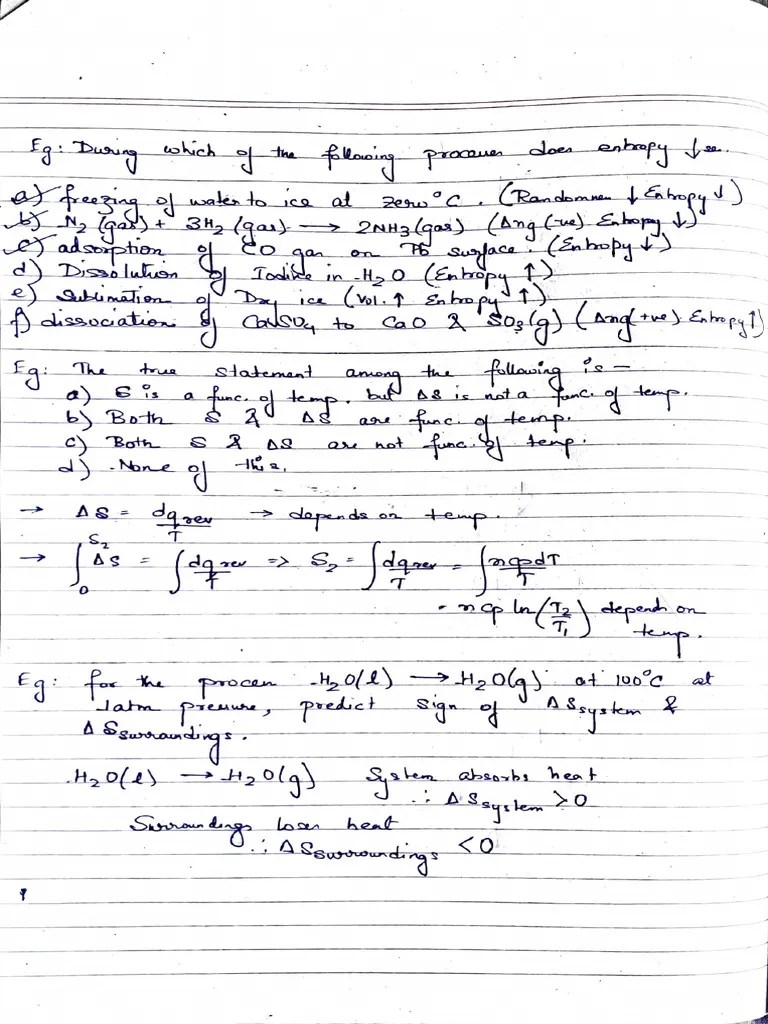 Eg: During which of the following processes does entropy ↓se.
a) freezing of water to ice at zero °C. (Randomness ↓ Entropy ↓)
b) N2 (gas) + 3H2 (gas) → 2NH3 (gas) (Δng (-ve) Entropy ↓)
c) adsorption of CO gas on Pb surface. (Entropy ↓)
d) Dissolution of Iodine in H2O (Entropy ↑)
e) Sublimation of Dry ice (Vol. ↑ Entropy ↑)
f) dissociation of CaSO4 to CaO & SO3(g) (Δng(+ve) Entropy ↑)
Eg: The true statement among the following is —
a) S is a func. of temp. but ΔS is not a func. of temp.
b) Both S & ΔS are func. of temp.
c) Both S & ΔS are not func. of temp.
d) None of this.
→ ΔS = dqrev/T → depends on temp.
→ ∫₀^S2 ΔS = ∫ dqrev/T => S2 = ∫ dqrev/T = ∫ ncpdT/T
= ncp ln(T2/T1) depends on
temp.
Eg: for the process H2O(l) → H2O(g) at 100°C at
1atm pressure, predict sign of ΔSsystem &
ΔSsurroundings.
H2O(l) → H2O(g) System absorbs heat
∴ ΔSsystem > 0
Surroundings loses heat
∴ ΔSsurroundings < 0